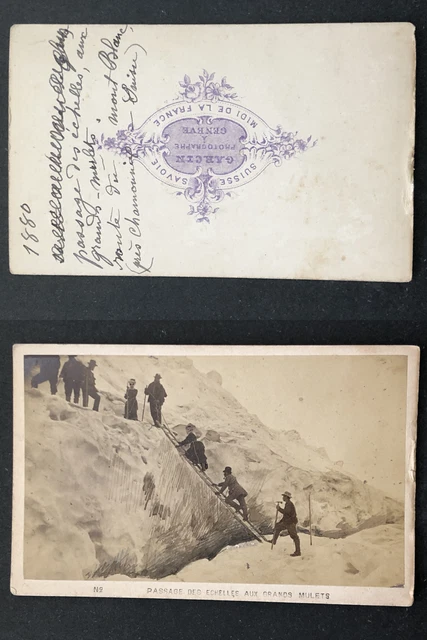 1880
passage des echelles, aux
grands-mulets.
route du mont Blanc,
(près Chamounix - Suisse)
GARCIN
PHOTOGRAPHE
À
GENÈVE
SUISSE SAVOIE
MIDI DE LA FRANCE
No PASSAGE DES ECHELLES AUX GRANDS MULETS